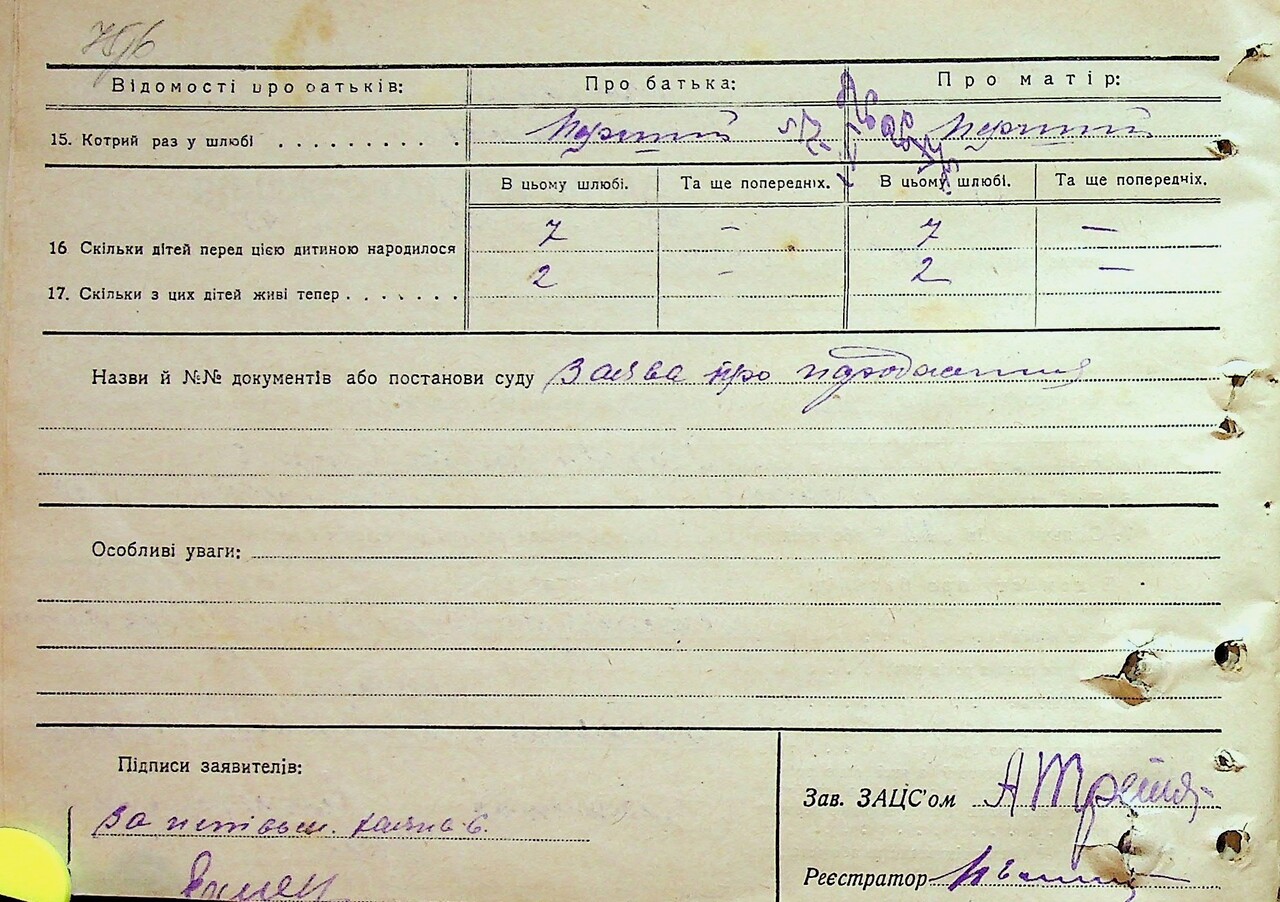 Відомості про батьків:
Про батька:
Про матір:
15. Котрий раз у шлюбі . . . . . . . . . .
Перший
Перший
В цьому шлюбі.
Та ще попередніх.
В цьому шлюбі.
Та ще попередчіх.
16 Скільки дітей перед цією дитиною народилося
7 – 7 —
17. Скільки з цих дітей живі тепер . . . . . . .
2 – 2 —
Назви й №№ документів або постанови суду Заява про народження
Особливі уваги:
Підписи заявителів:
Зав. ЗАЦС'ом
Реєстратор